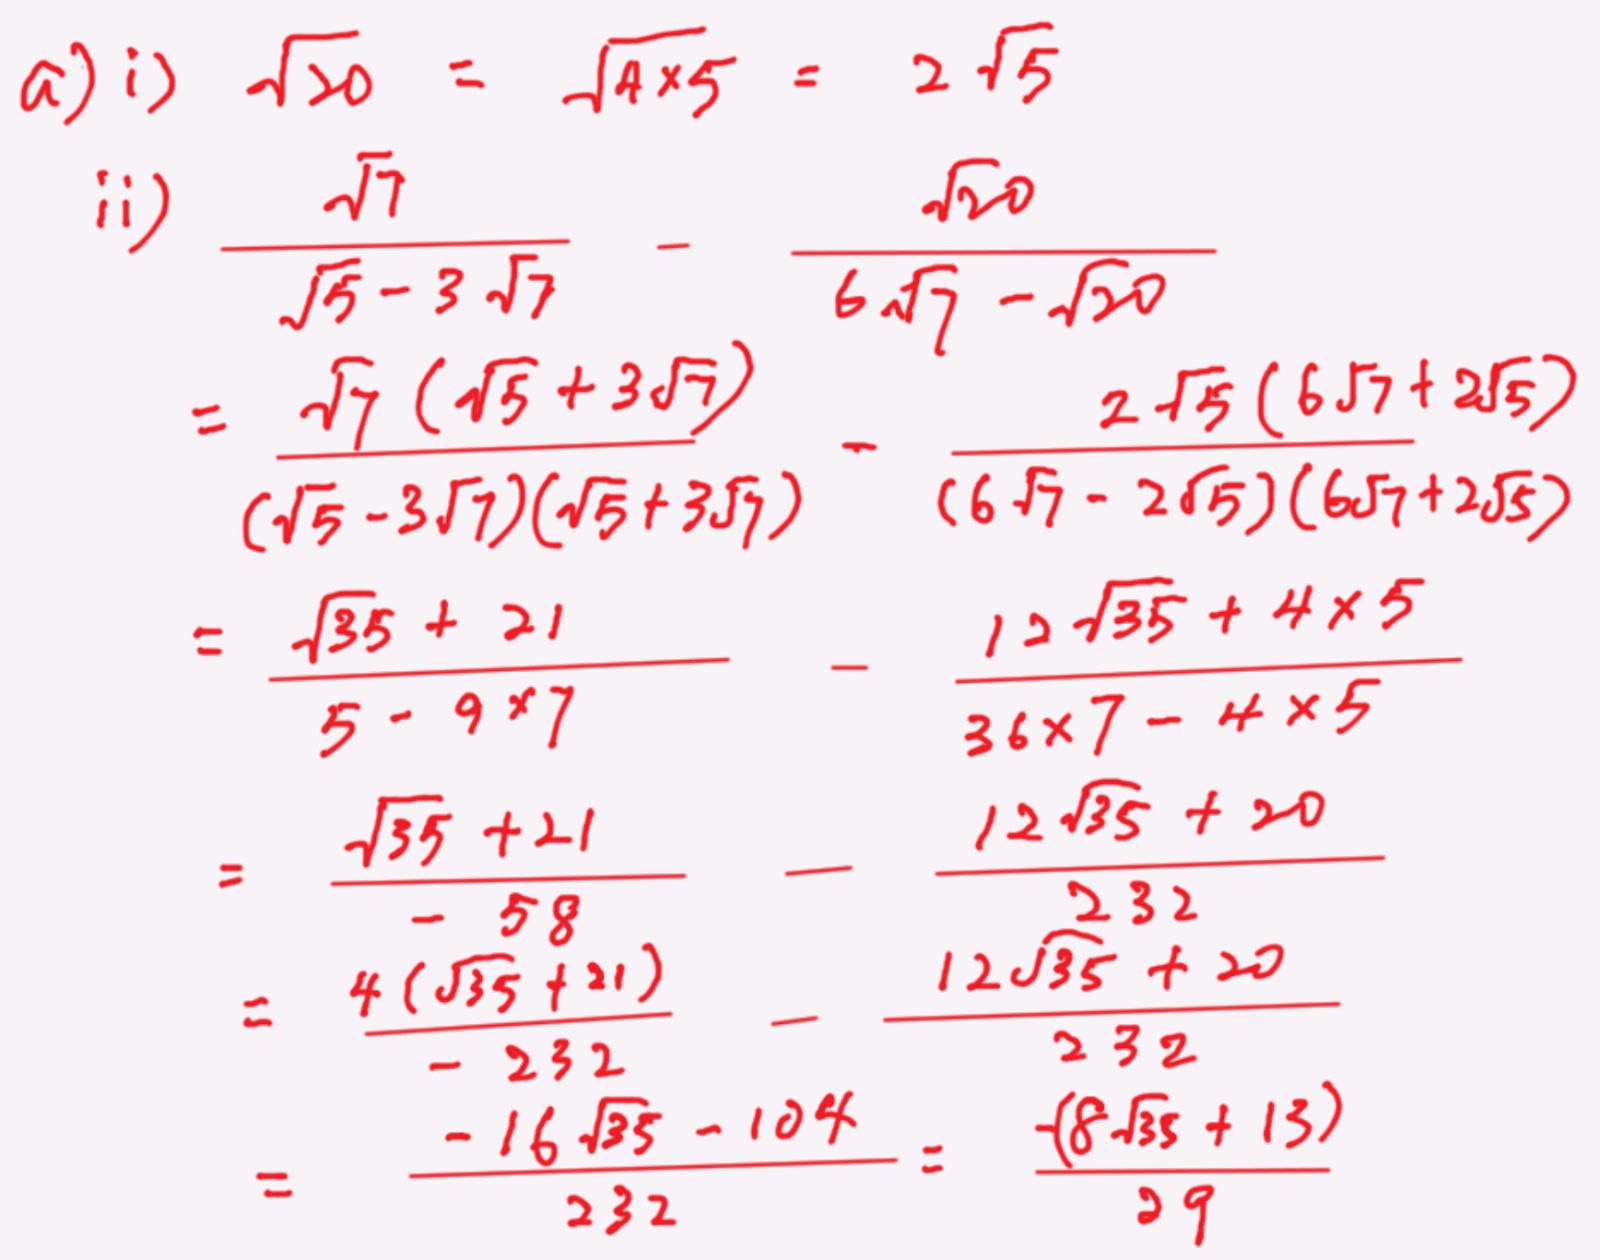 a) i) √20 = √(4×5) = 2√5
ii) √7/(√5 - 3√7) - √20/(6√7 - √20)
= √7(√5 + 3√7)/((√5 - 3√7)(√5 + 3√7)) - 2√5(6√7 + 2√5)/((6√7 - 2√5)(6√7 + 2√5))
= (√35 + 21)/(5 - 9×7) - (12√35 + 4×5)/(36×7 - 4×5)
= (√35 + 21)/(-58) - (12√35 + 20)/232
= 4(√35 + 21)/(-232) - (12√35 + 20)/232
= (-16√35 - 104)/232 = -(8√35 + 13)/29